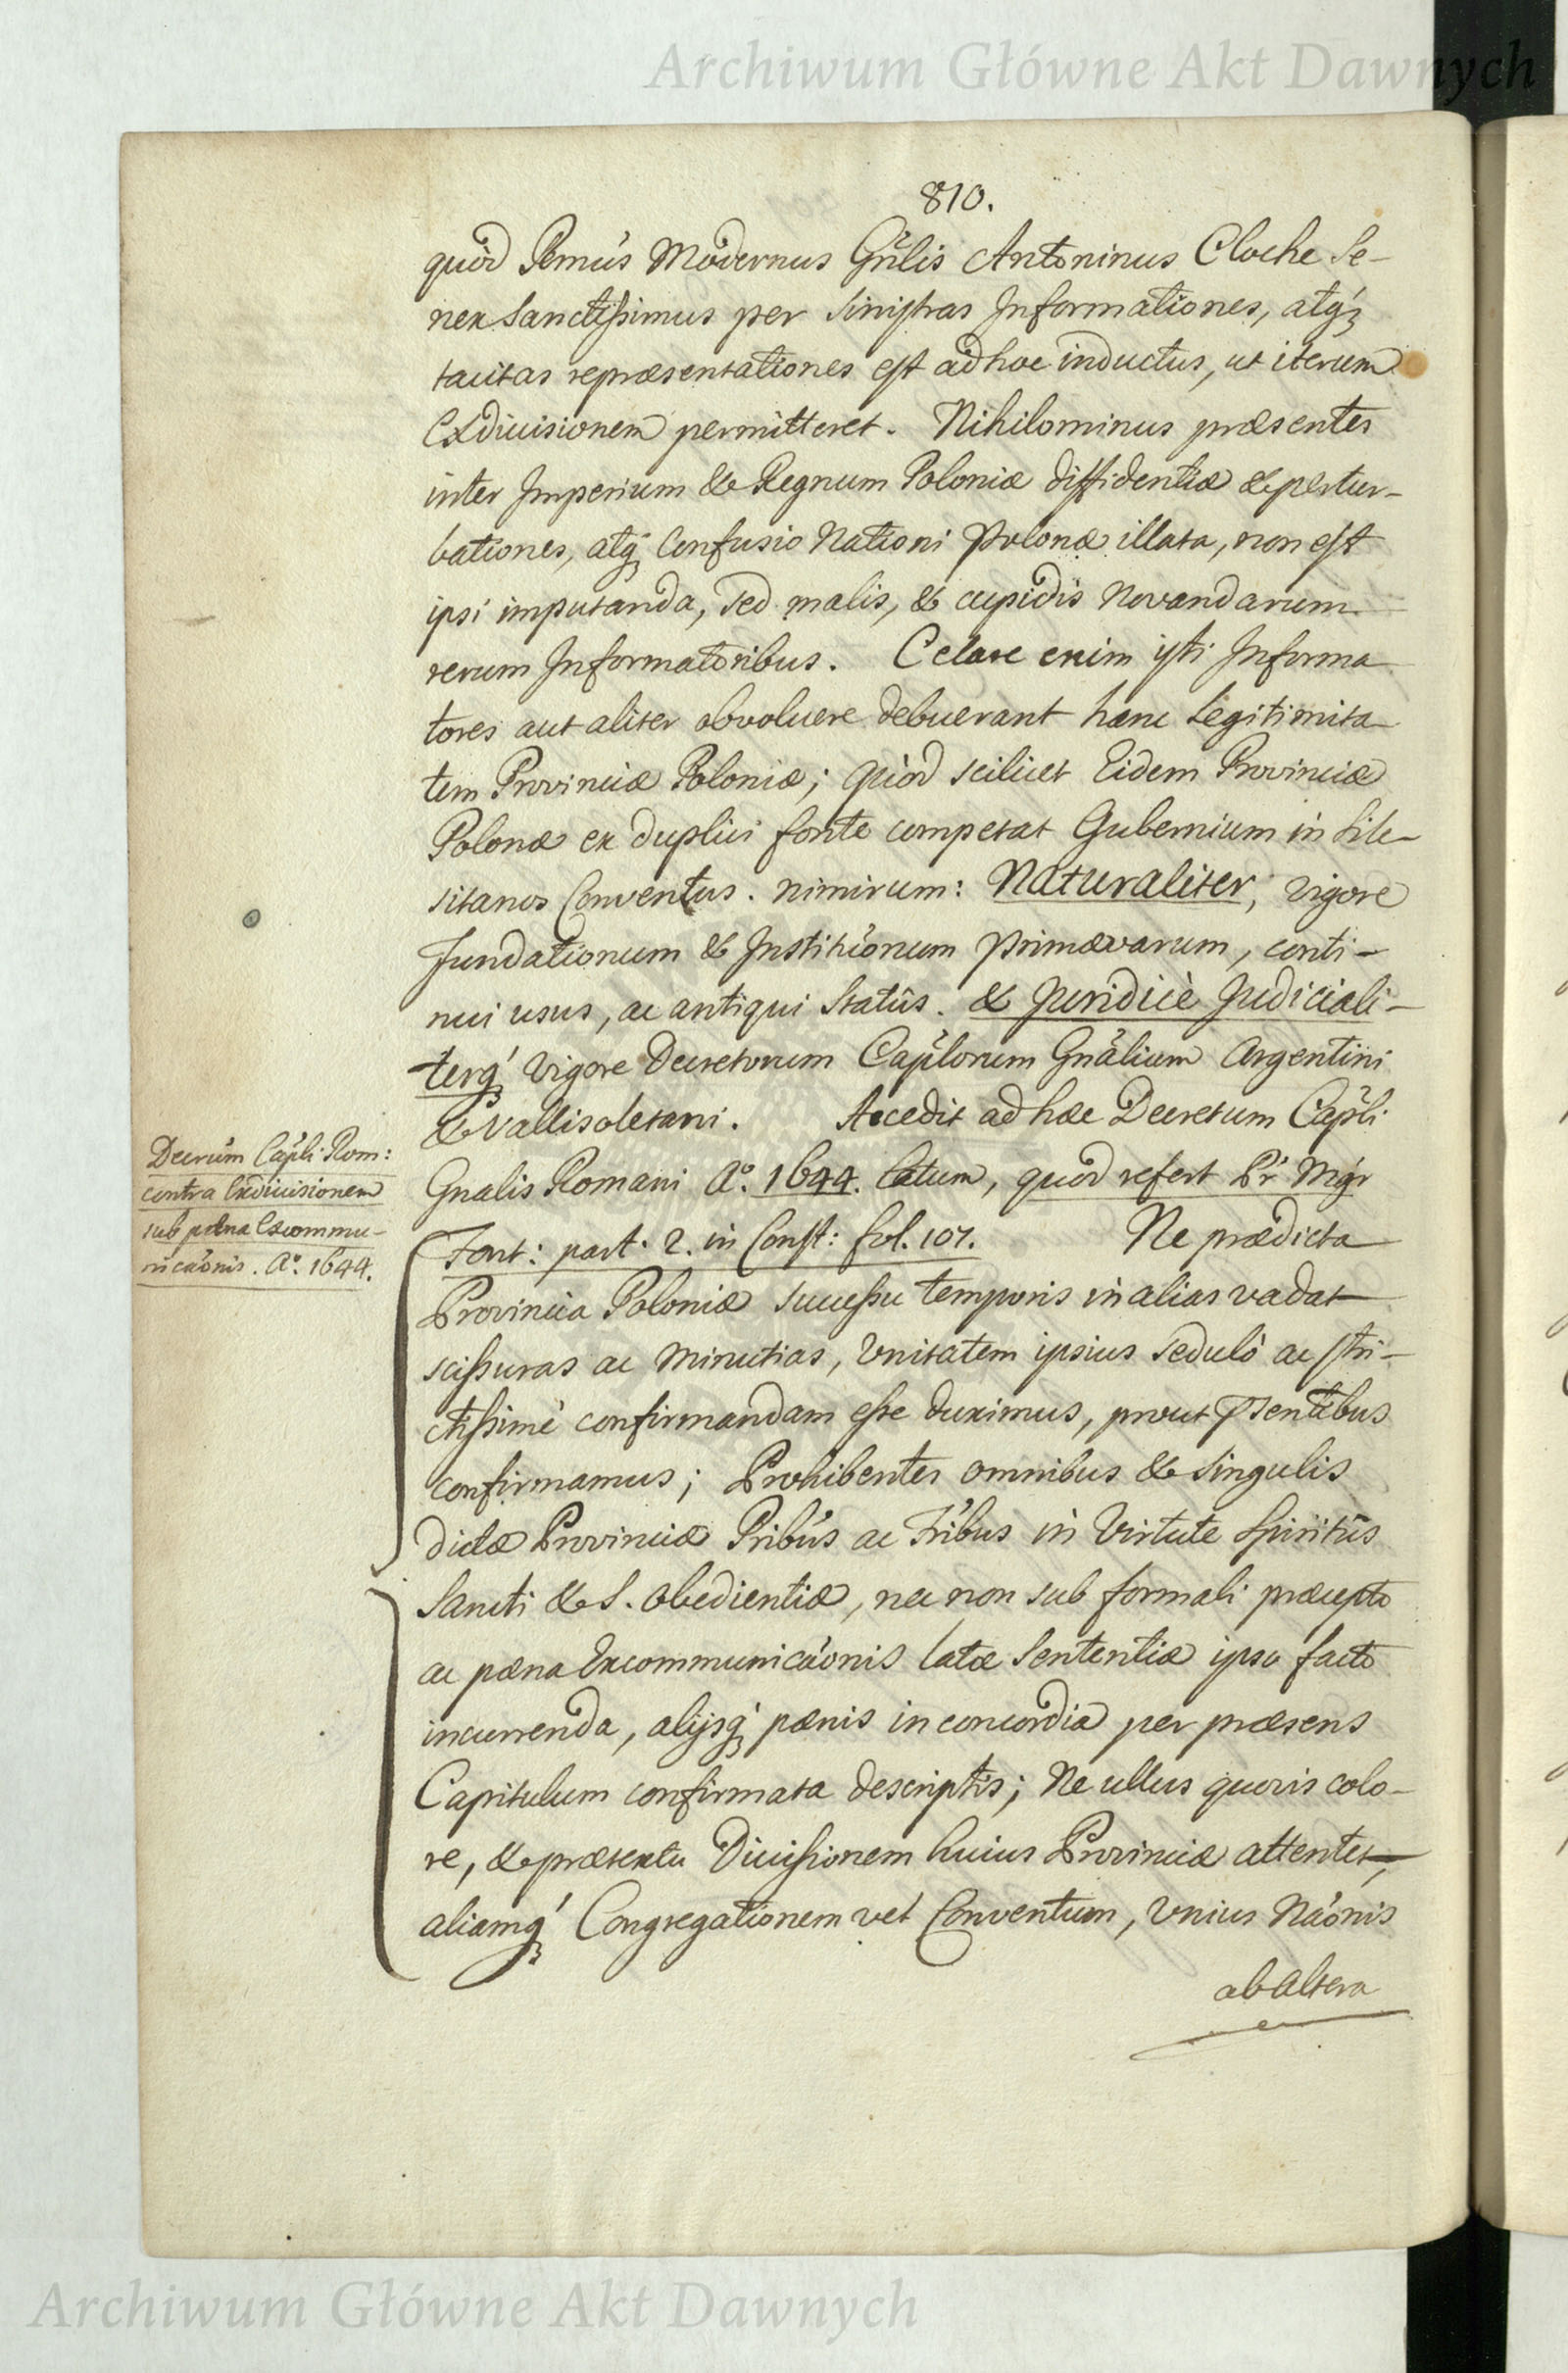 Archiwum Główne Akt Dawnych
810.
quòd Rmús Modernus Gnlis Antoninus Cloche Se-
nex Sanctissimus per sinistras Informationes, atq;
tacitas repræsentationes est ad hoc inductus, ut iterum
Exdiuisionem permitteret. Nihilominus præsentes
inter Imperium & Regnum Poloniæ diffidentiæ & pertur-
bationes, atq; Confusio Nationi Polonæ illata, non est
ipsi imputanda, sed malis, & cupidis Novandarum
rerum Informatoribus. Celare enim isti Informa
tores aut aliter obvoluere debuerant hanc Legitimita
tem Provinciæ Poloniæ; quòd scilicet Eidem Provinciæ
Polonæ ex duplici fonte competat Gubernium in Sile-
sitanos Conventus. nimirum: Naturaliter, vigore
Fundationum & Institionum Primævarum, conti-
nui usus, ac antiqui Statûs. & Juridicè Judiciali-
terq; vigore Decretorum Caplorum Gnalium Argentini
& Vallisoletani. Accedit ad hæc Decretum Capli
Gnalis Romani Aº. 1644. latum, quod refert Pr Mgr
Font: part. 2. in Const: fol. 107. Ne prædicta
Provincia Poloniæ successu temporis in alias vadat
scissuras ac Minutias, Vnitatem ipsius sedulò ac stri-
ctissimè confirmandam esse duximus, prout Psentibus
confirmamus; Prohibentes omnibus & singulis
dictæ Provinciæ Pribús ac Fribus in Virtute Spiritûs
Sancti & S. Obedientiæ, nec non sub formali præcepto
ac pæna Excommunicaónis latæ Sententiæ ipso facto
incurrenda, alijsq; pænis in concordia per præsens
Capitulum confirmata descriptis; Ne ullus quovis colo-
re, & prætextu Diuisionem huius Provinciæ attentet,
aliamq; Congregationem vel Conventum, Vnius Naónis
ab altera
Decrúm Capli Rom:
contra Exdiuisionem
sub pæna Excommu-
nicaónis. Aº. 1644.
Archiwum Główne Akt Dawnych